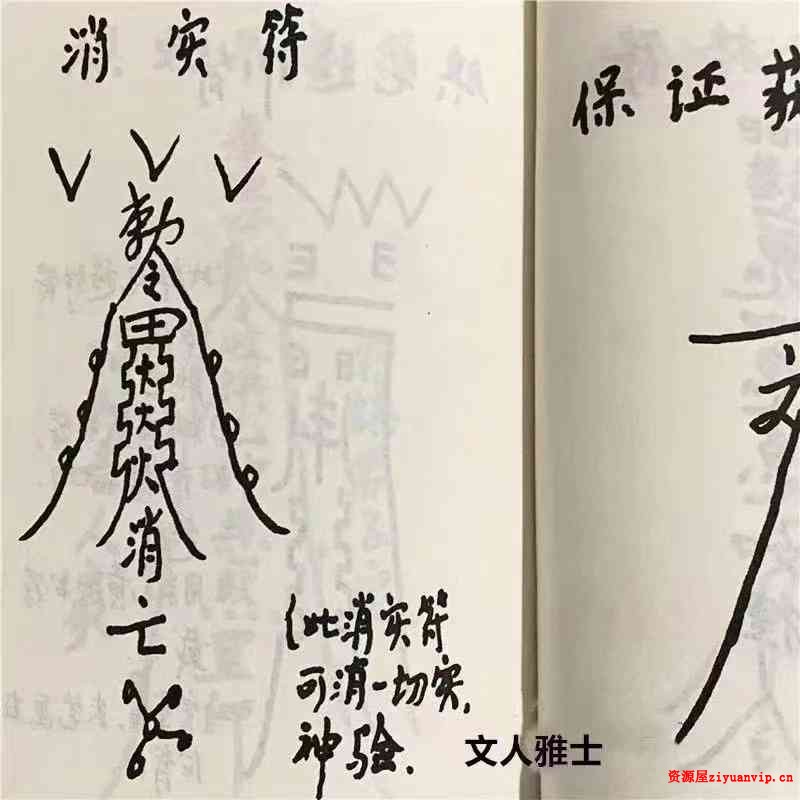 消实符
敕
令
田
火
火
火
消
亡
(此消实符
可消一切实,
神验.
保证获
文人雅士
资源屋ziyuanvip.cn